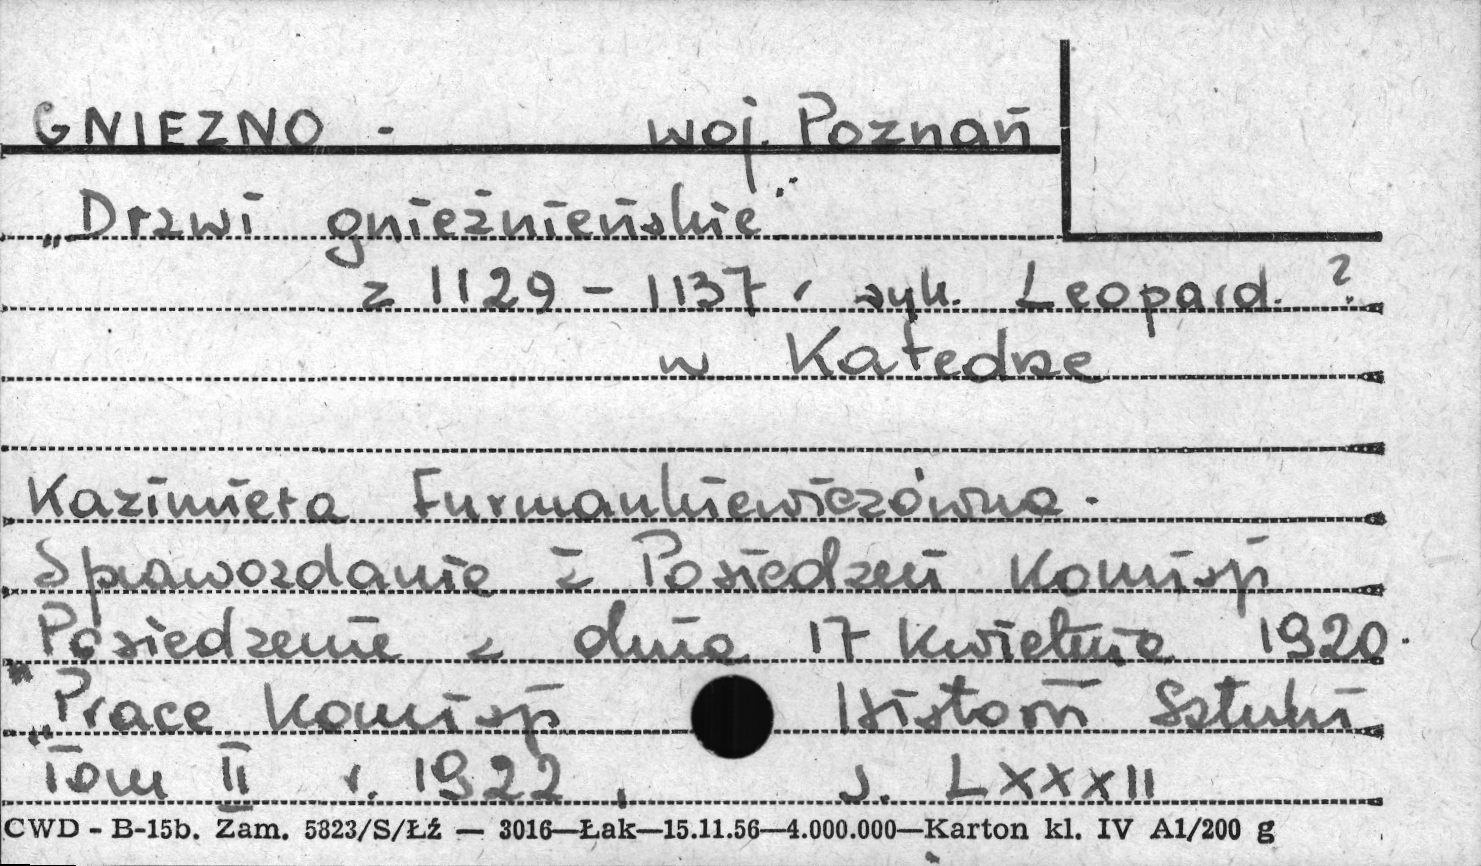 GNIEZNO - woj. Poznań
„Drzwi gnieźnieńskie"
z 1129 - 1137, wyk. Leopard. ?
w Katedrze
Kazimiera Furmankiewiczówna.
Sprawozdanie z Posiedzeń Komisji
Posiedzenie z dnia 17 kwietnia 1920.
„Prace Komisji Historii Sztuki
Tom II r. 1922, s. LXXXII
CWD - B-15b. Zam. 5823/S/Łź — 3016—Łak—15.11.56—4.000.000—Karton kl. IV A1/200 g